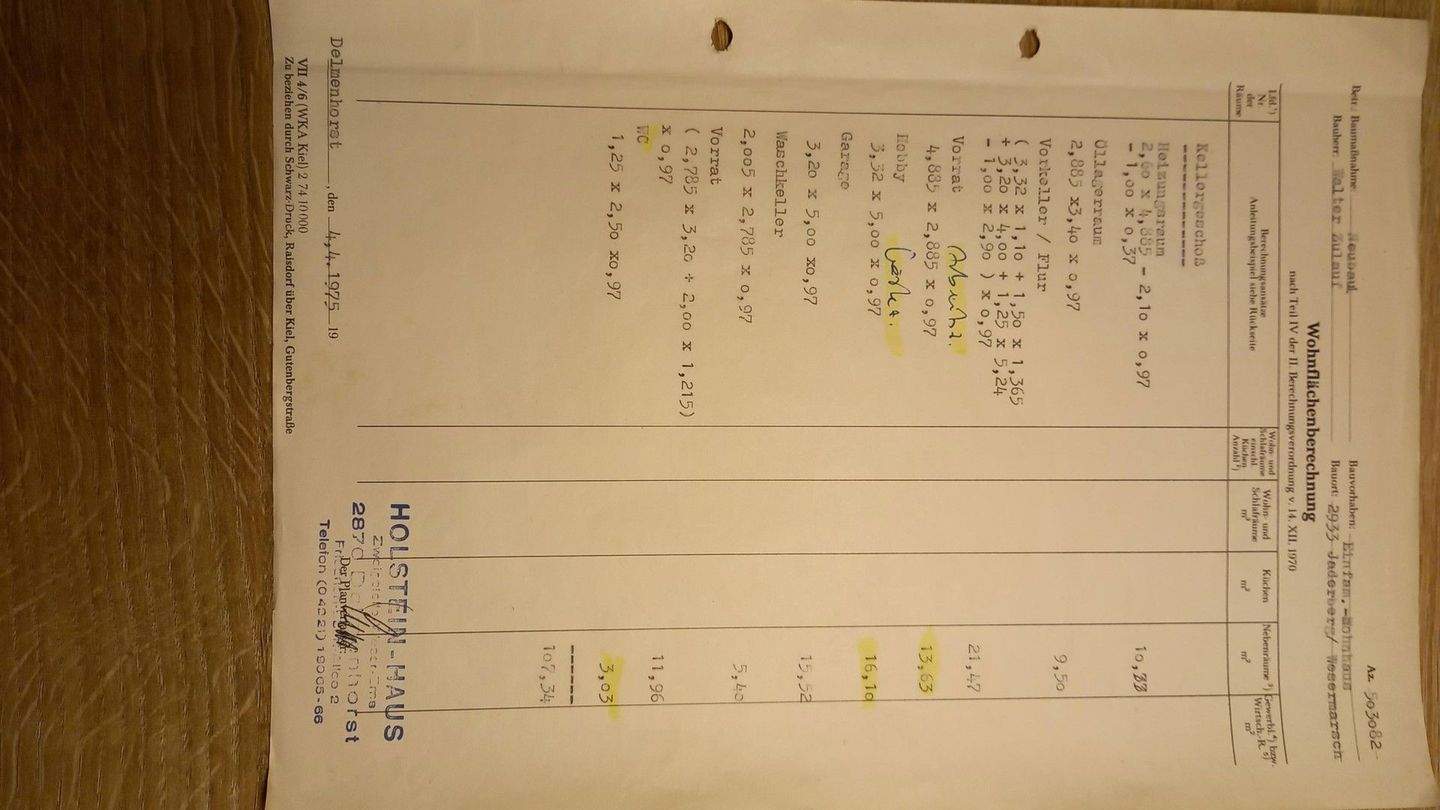 Az. 503082
Betr. Baumaßnahme: Neubau
Bauvorhaben: Einfam.-Wohnhaus
Bauherr: Walter Zulauf
Bauort: 2933 Jaderberg/ Wesermarsch
Wohnflächenberechnung
nach Teil IV der II. Berechnungsverordnung v. 14. XII. 1970
Lfd.¹) Nr. der Räume
Berechnungsansätze
Anleitungsbeispiel siehe Rückseite
Wohn- und Schlafräume einschl. Küchen Anzahl²)
Wohn- und Schlafräume m²
Küchen m²
Nebenräume ³) m²
Gewerbl.⁴) bzw. Wirtsch.-R. ⁵) m²
Kellergeschoß
------------
Heizungsraum
2,60 x 4,885 - 2,10 x 0,97
- 1,00 x 0,37 10,88
Öllagerraum
2,885 x3,40 x 0,97 9,50
Vorkeller / Flur
( 3,32 x 1,10 + 1,50 x 1,365
+ 3,20 x 4,00 + 1,25 x 5,24
- 1,00 x 2,90 ) x 0,97 21,47
Vorrat
4,885 x 2,885 x 0,97 13,63
Hobby
3,32 x 5,00 x 0,97 16,10
Garage
3,20 x 5,00 x0,97 15,52
Waschkeller
2,005 x 2,785 x 0,97 5,40
Vorrat
( 2,785 x 3,20 + 2,00 x 1,215)
x 0,97 11,96
WC
1,25 x 2,50 x0,97 3,03
------
107,34
HOLSTEIN-HAUS
2870 Delmenhorst
Telefon (04221) 19005-66
Delmenhorst, den 4,4. 1975 19
VII 4/6 (WKA Kiel) 2 74 10000
Zu beziehen durch Schwarz-Druck, Raisdorf über Kiel, Gutenbergstraße